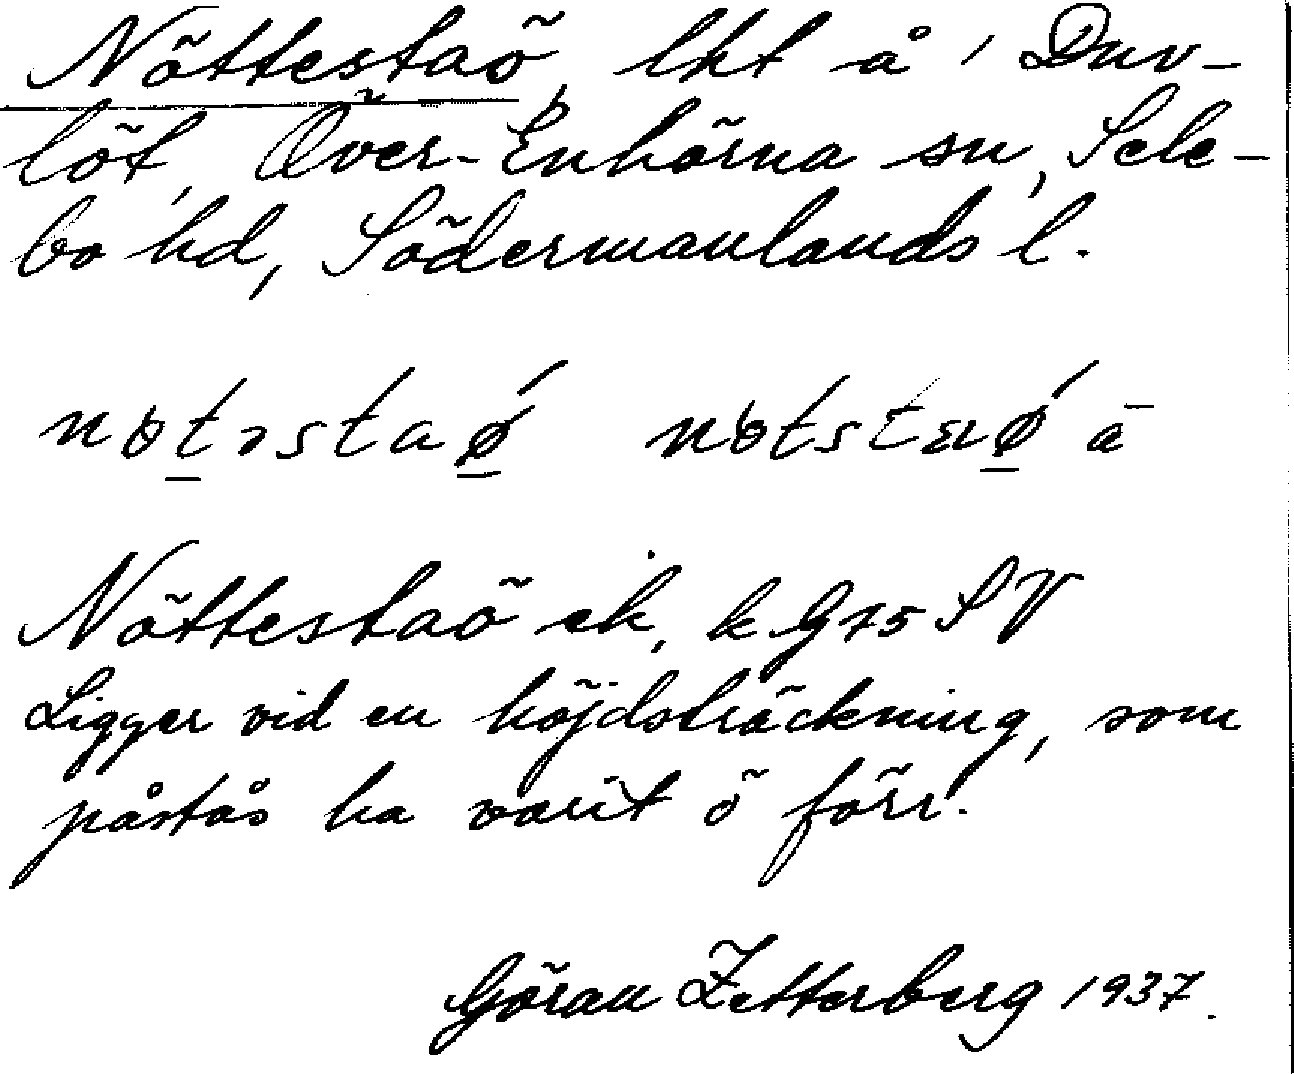 Nöttestaö, lht å 1 Duv-
löt, Över-Enhörna sn, Sele-
bo hd, Södermanlands l.
nɵtəstaǿ̲ nɵtstaǿ̲ ā
Nöttestaö ek, k G75 SV
Ligger vid en höjdsträckning, som
påstås ha varit ö förr.
Göran Zetterberg 1937.